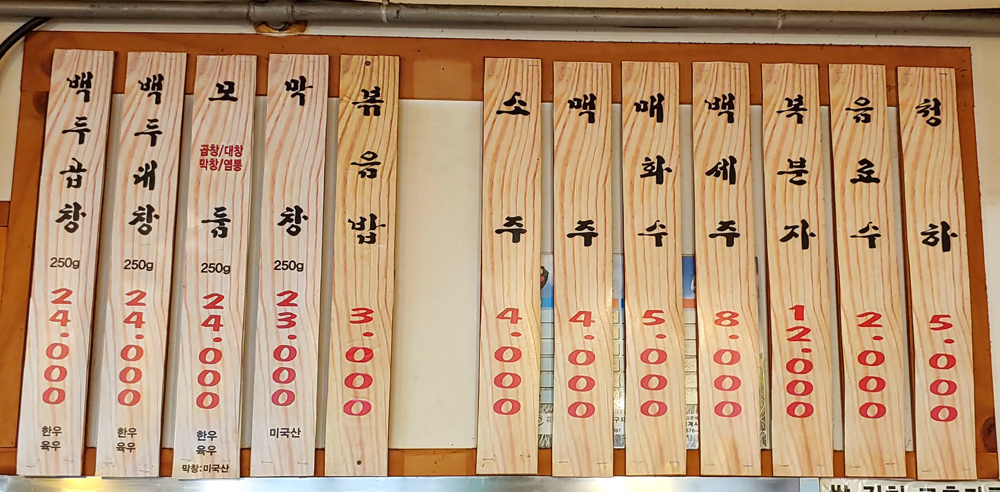 백두곱창
250g
24.000
한우
육우
백두대창
250g
24.000
한우
육우
모둠
곱창/대창
막창/염통
250g
24.000
한우
육우
막창:미국산
막창
250g
23.000
미국산
볶음밥
3.000
소주
4.000
맥주
4.000
매화수
5.000
백세주
8.000
복분자
12.000
음료수
2.000
청하
5.000